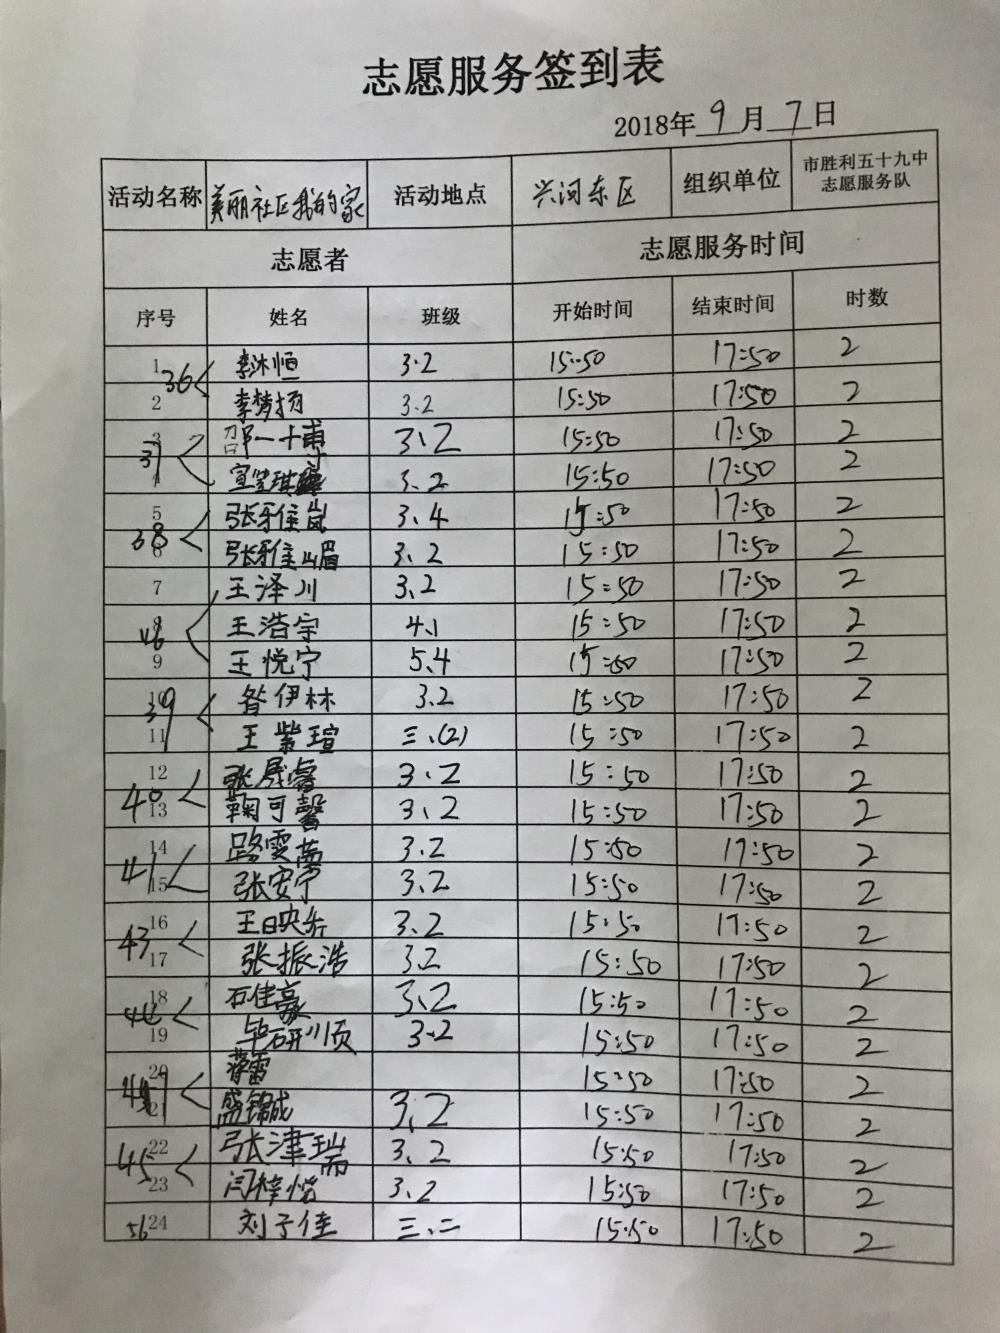 志愿服务签到表
2018年9月7日
活动名称 美丽社区我的家 活动地点 兴河东区 组织单位 市胜利五十九中
志愿服务队
志愿者 志愿服务时间
序号 姓名 班级 开始时间 结束时间 时数
1 36 李沐恒 3.2 15:50 17:50 2
2 李梦扬 3.2 15:50 17:50 2
3 37 邵一十甫 3、2 15:50 17:50 2
4 3、2 15:50 17:50 2
5 38 张雅岚 3、4 15:50 17:50 2
6 张雅嵋 3、2 15:50 17:50 2
7 王泽川 3、2 15:50 17:50 2
8 46 王浩宇 4、1 15:50 17:50 2
9 王悦宁 5、4 15:50 17:50 2
10 39 昝伊林 3.2 15:50 17:50 2
11 王紫瑄 三、(2) 15:50 17:50 2
12 40 张晟睿 3、2 15:50 17:50 2
13 鞠可馨 3、2 15:50 17:50 2
14 41 路雯茜 3.2 15:50 17:50 2
15 张安宁 3、2 15:50 17:50 2
16 43 王映卉 3、2 15:50 17:50 2
17 张振浩 3.2 15:50 17:50 2
18 44 石佳豪 3、2 15:50 17:50 2
19 毕研顺 3.2 15:50 17:50 2
20 蒋雷 15:50 17:50 2
21 盛锦诚 3、2 15:50 17:50 2
22 45 张津瑞 3、2 15:50 17:50 2
23 闫梓 3、2 15:50 17:50 2
24 56 刘子佳 三、二 15:50 17:50 2